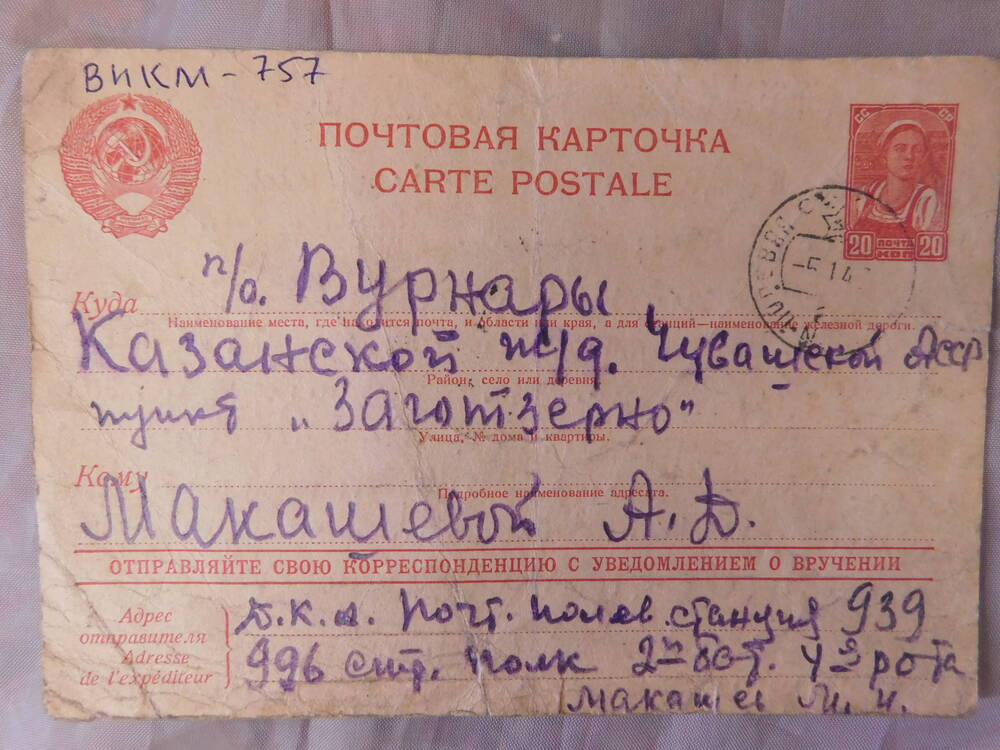 ВИКМ-757
ПОЧТОВАЯ КАРТОЧКА
CARTE POSTALE
СС СР
20 ПОЧТА КОП 20
-5 1 4
п/о. Вурнары
Куда
Наименование места, где находится почта, и области или края, а для станций—наименование железной дороги.
Казанской ж/д. Чувашской Асср
Район, село или деревня.
пункт „Заготзерно"
Улица, № дома и квартиры.
Кому
Подробное наименование адресата.
Макашевой А.Д.
ОТПРАВЛЯЙТЕ СВОЮ КОРРЕСПОНДЕНЦИЮ С УВЕДОМЛЕНИЕМ О ВРУЧЕНИИ
Адрес отправителя
Adresse de l'expéditeur
Д.К.А. Почт. полев. станция 939
996 стр. полк 2й бат. 4я рота
Макашев М. И.